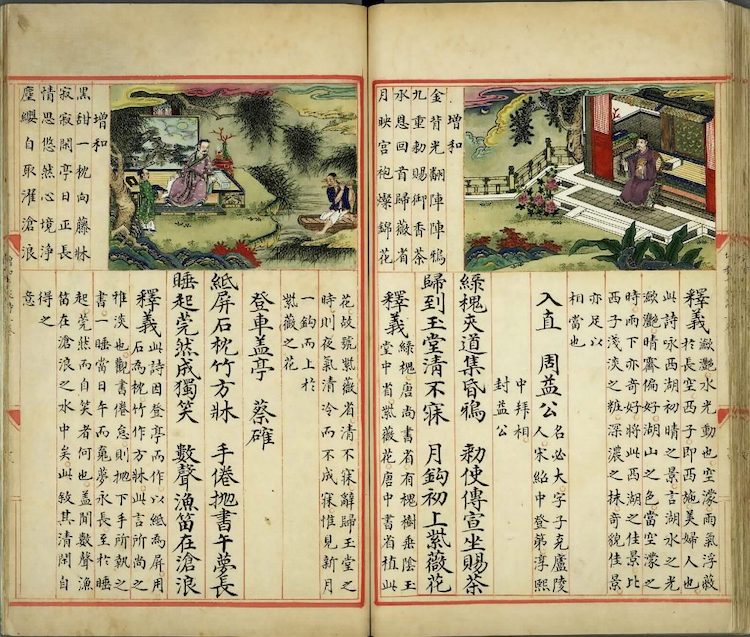 增和
金背光翻陣陣鴉
九重勅賜御香茶
承恩回首歸薇省
月映宮袍燦錦花
釋義 瀲灧水光動也空濛雨氣浮薇
於長空西子即西施美婦人也
此詩咏西湖初晴之景言湖水之光
瀲灧晴霽偏好湖山之色當空濛之
時雨下亦奇好將此西湖之佳景比
西子淺淡之粧深濃之抹奇貌佳景
亦足以
相當也
入直 周益公 名必大字子充廬陵
人宋紹中登第淳熙
中拜相
封益公
綠槐夾道集昏鴉 勅使傳宣坐賜茶
歸到玉堂清不寐 月鈎初上紫薇花
釋義 綠槐唐尚書省有槐樹垂陰玉
堂中省紫薇花唐中書省植此
增和
黑甜一枕向藤牀
寂寂閑亭日正長
情思悠然心境淨
塵纓自取濯滄浪
花故號紫薇省清不寐辭歸玉堂之
時則夜氣清冷而不成寐惟見新月
一鈎而上於
紫薇之花
登車盖亭 蔡確
紙屏石枕竹方牀 手倦拋書午夢長
睡起莞然成獨笑 數聲漁笛在滄浪
釋義 此詩因登亭而作以紙為屏用
石為枕竹作方牀此言所尚之
雅淡也觀書倦怠則拋下手所執之
書一睡當日午而竟夢永長至於睡
起莞然而自笑者何也盖聞數聲漁
笛在滄浪之水中矣此敘其清閑自
得之
意